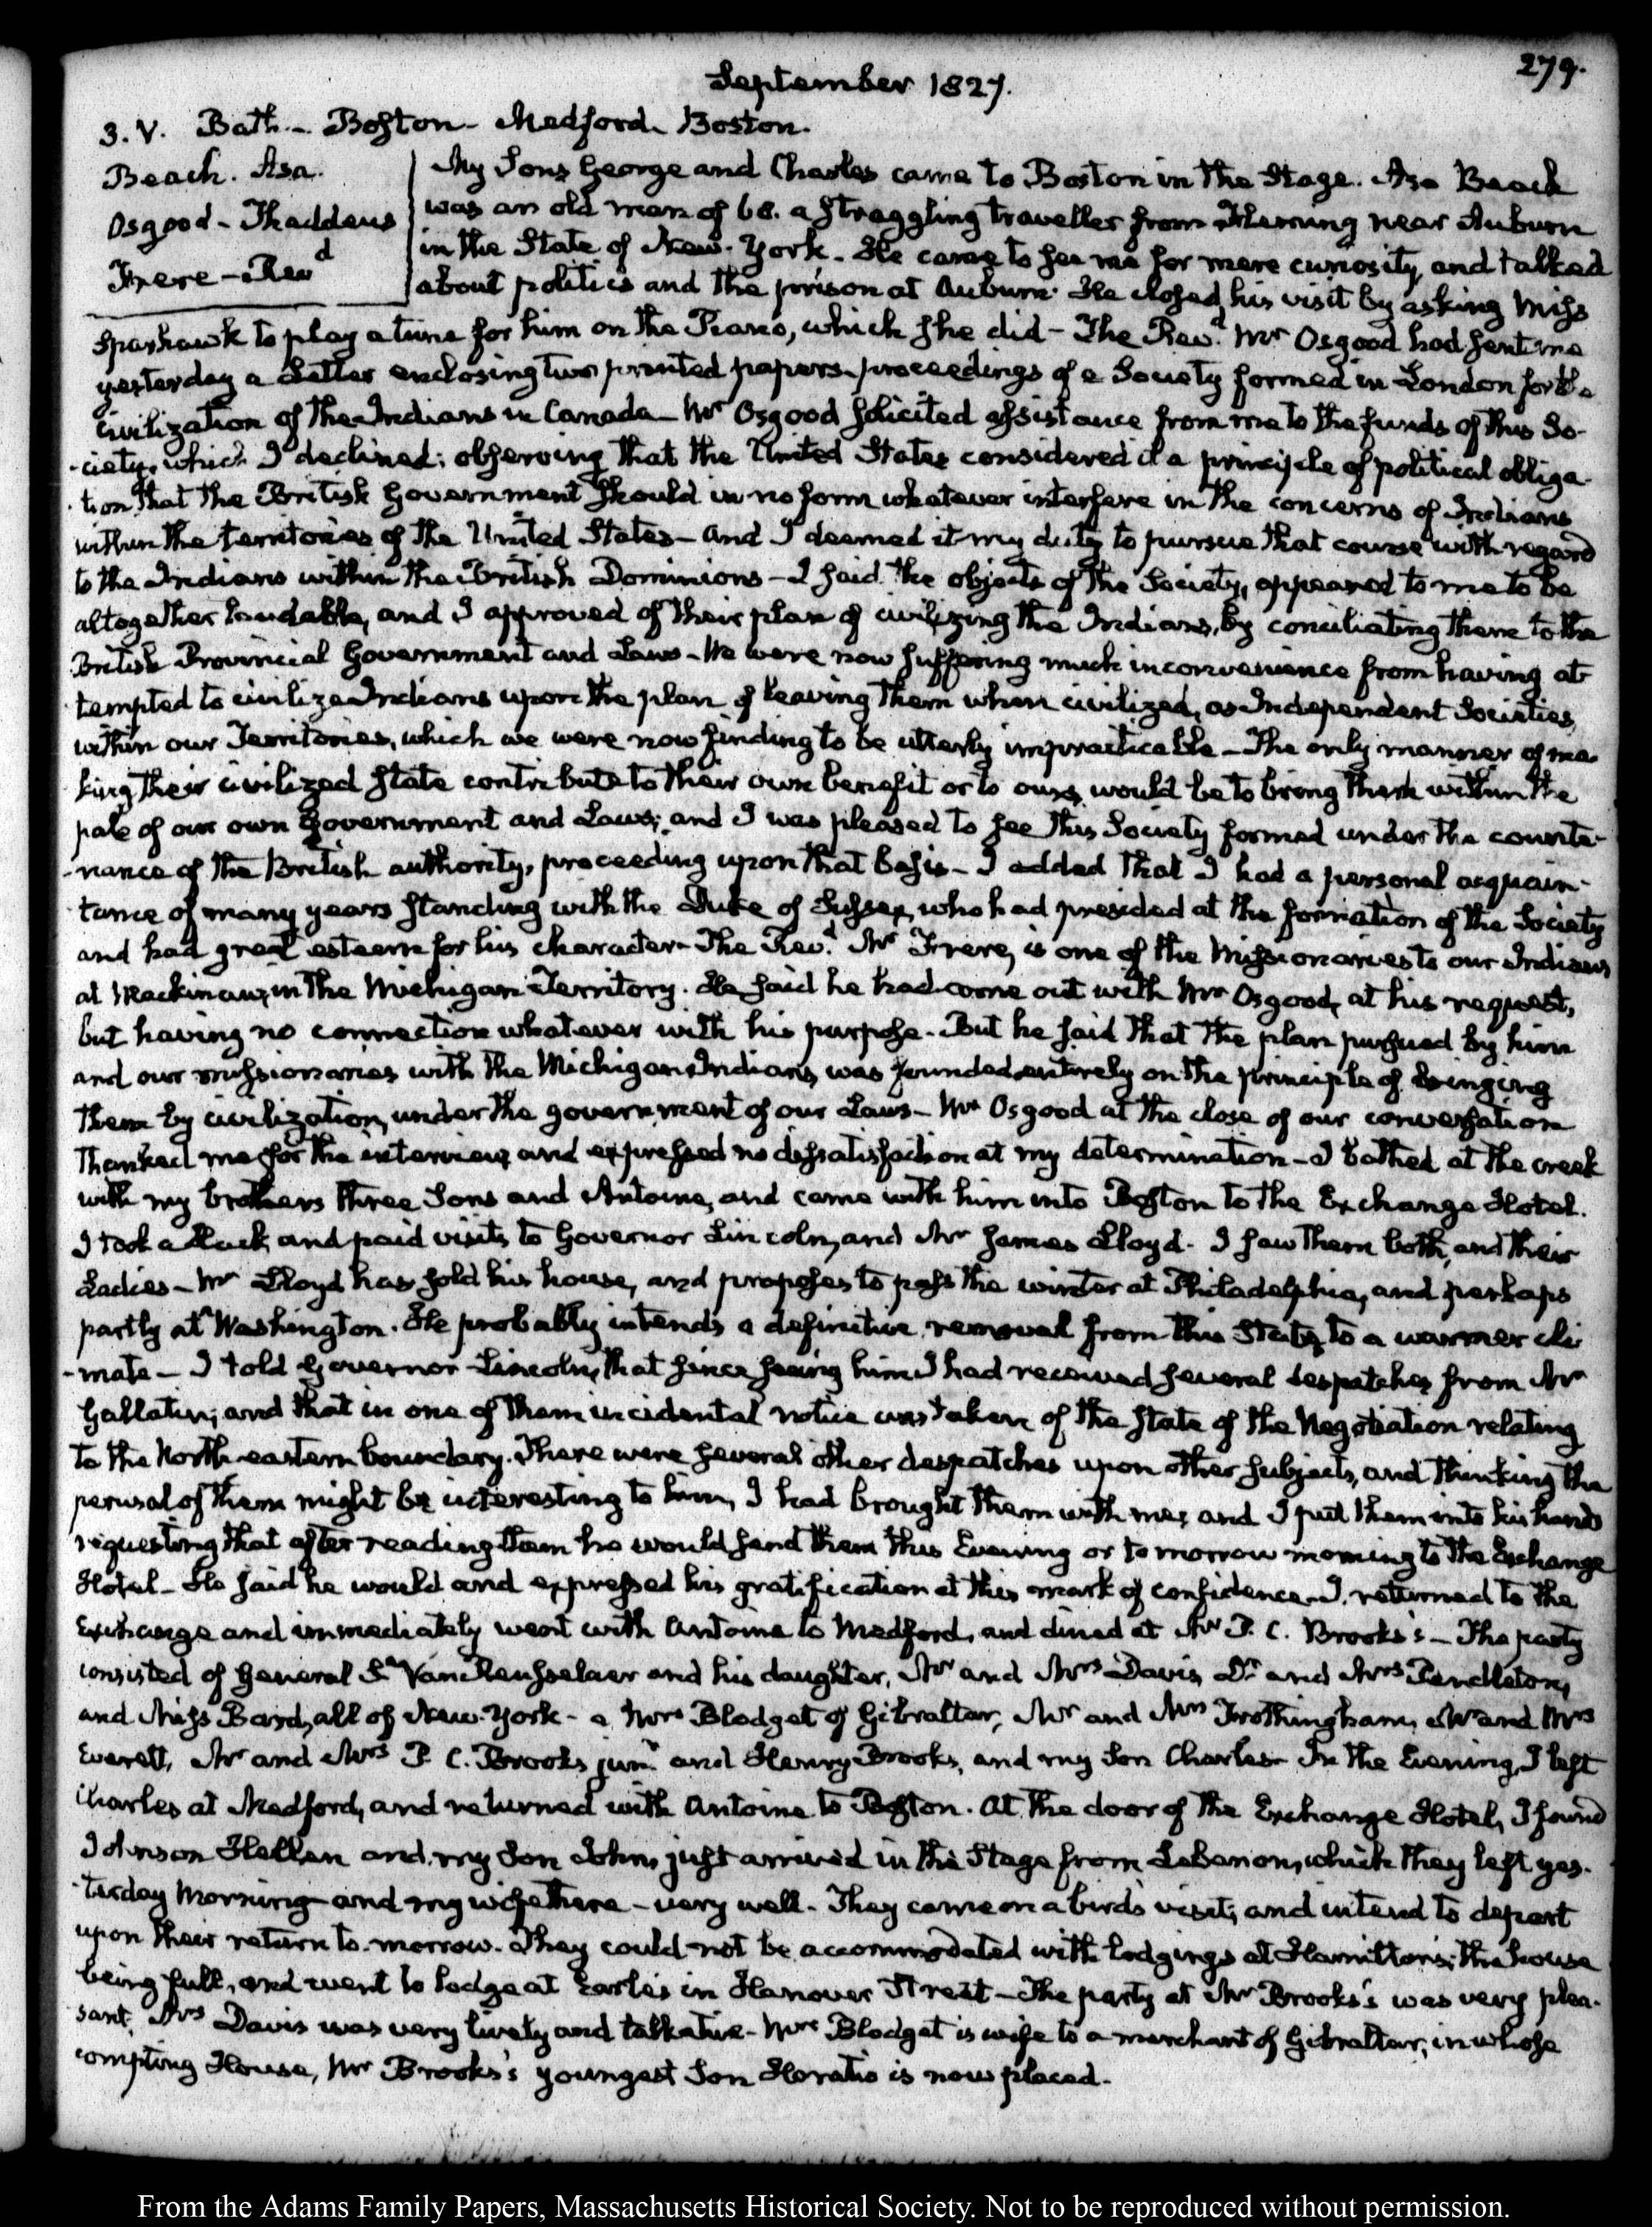 279.
September 1827.
3. V. Bath – Boston – Medford. Boston.
Beach. Asa.
Osgood – Thaddeus
Frere – Revd
My Sons George and Charles came to Boston in the Stage. Asa Beach
was an old man of 68. a straggling traveller from near Auburn
in the State of New-York. He came to see me for mere curiosity, and talked
about politics and the prison at Auburn. He closed his visit by asking Miss
Sparhawk to play a tune for him on the Piano, which she did – The Revd. Mr Osgood had sent me
yesterday a Letter enclosing two printed papers – proceedings of a Society formed in London for the
civilization of the Indians in Canada – Mr Osgood solicited assistance from me to the funds of this So-
-ciety, which I declined; observing that the United States considered it a principle of political obliga-
-tion that the British Government should in no form whatever interfere in the concerns of Indians
within the territories of the United States – and I deemed it my duty to pursue that course with regard
to the Indians within the British Dominions – I said the objects of the Society, appeared to me to be
altogether laudable, and I approved of their plan of civilizing the Indians, by conciliating them to the
British Provincial Government and Laws – We were now suffering much inconvenience from having at-
-tempted to civilize Indians upon the plan of leaving them when civilized, as Independent Societies,
within our Territories, which we were now finding to be utterly impracticable – The only manner of ma-
king their civilized state contribute to their own benefit or to ours, would be to bring them within the
pale of our own Government and Laws; and I was pleased to see this Society formed under the counte-
-nance of the British authority, proceeding upon that basis – I added that I had a personal acquain-
-tance of many years standing with the Duke of Sussex, who had presided at the formation of the Society
and had great esteem for his character – The Revd. Mr Frere, is one of the Missionaries to our Indians
at Mackinaw, in the Michigan Territory. He said he had come out with Mr Osgood, at his request,
but having no connection whatever with his purpose. But he said that the plan pursued by him
and our missionaries with the Michigan Indians, was founded entirely on the principle of bringing
them by civilization, under the government of our Laws – Mr Osgood at the close of our conversation
thanked me for the interview, and expressed no dissatisfaction at my determination – I bathed at the creek
with my brothers three Sons and Antoine, and came with him into Boston to the Exchange Hotel.
I took a Hack, and paid visits to Governor Lincoln, and Mr James Lloyd. I saw them both, and their
Ladies – Mr Lloyd has sold his house, and proposes to pass the winter at Philadelphia, and perhaps
partly at Washington. He probably intends a definitive removal from this State, to a warmer cli
-mate – I told Governor Lincoln, that since seeing him I had received several despatches from Mr
Gallatin; and that in one of them incidental notice was taken of the state of the Negotiation relating
to the North-eastern boundary. There were several other despatches upon other subjects, and thinking the
perusal of them might be interesting to him, I had brought them with me; and I put them into his hands
requesting that after reading them he would send them this Evening or to morrow morning to the Exchange
Hotel – He said he would and expressed his gratification at this mark of confidence. I returned to the
Exchange and immediately went with Antoine to Medford, and dined at Mr P. C. Brooks's – The party
consisted of General S. Van Rensselaer and his daughter, Mr and Mrs Davis, Dr. and Mrs Pendleton,
and Miss Bard, all of New-York – a Mrs Blodget of Gibraltar, Mr and Mrs Frothingham, Mr and Mrs
Everett, Mr and Mrs P. C. Brooks junr. and Henry Brooks, and my Son Charles – In the Evening, I left
Charles at Medford, and returned with Antoine to Boston. At the door of the Exchange Hotel, I found
Johnson Hellen and my Son John, just arrived in the Stage from Lebanon, which they left yes-
-terday Morning – and my wife there – very well. They came on a bird's visit, and intend to depart
upon their return to-morrow. They could not be accommodated with lodgings at Hamilton's; the house
being full, and went to lodge at Earle's in Hanover Street – The party at Mr Brooks's was very plea-
sant. Mrs Davis was very lively and talkative – Mrs Blodget is wife to a merchant of Gibraltar; in whose
compting House, Mr Brooks's youngest Son Horatio is now placed.
From the Adams Family Papers, Massachusetts Historical Society. Not to be reproduced without permission.